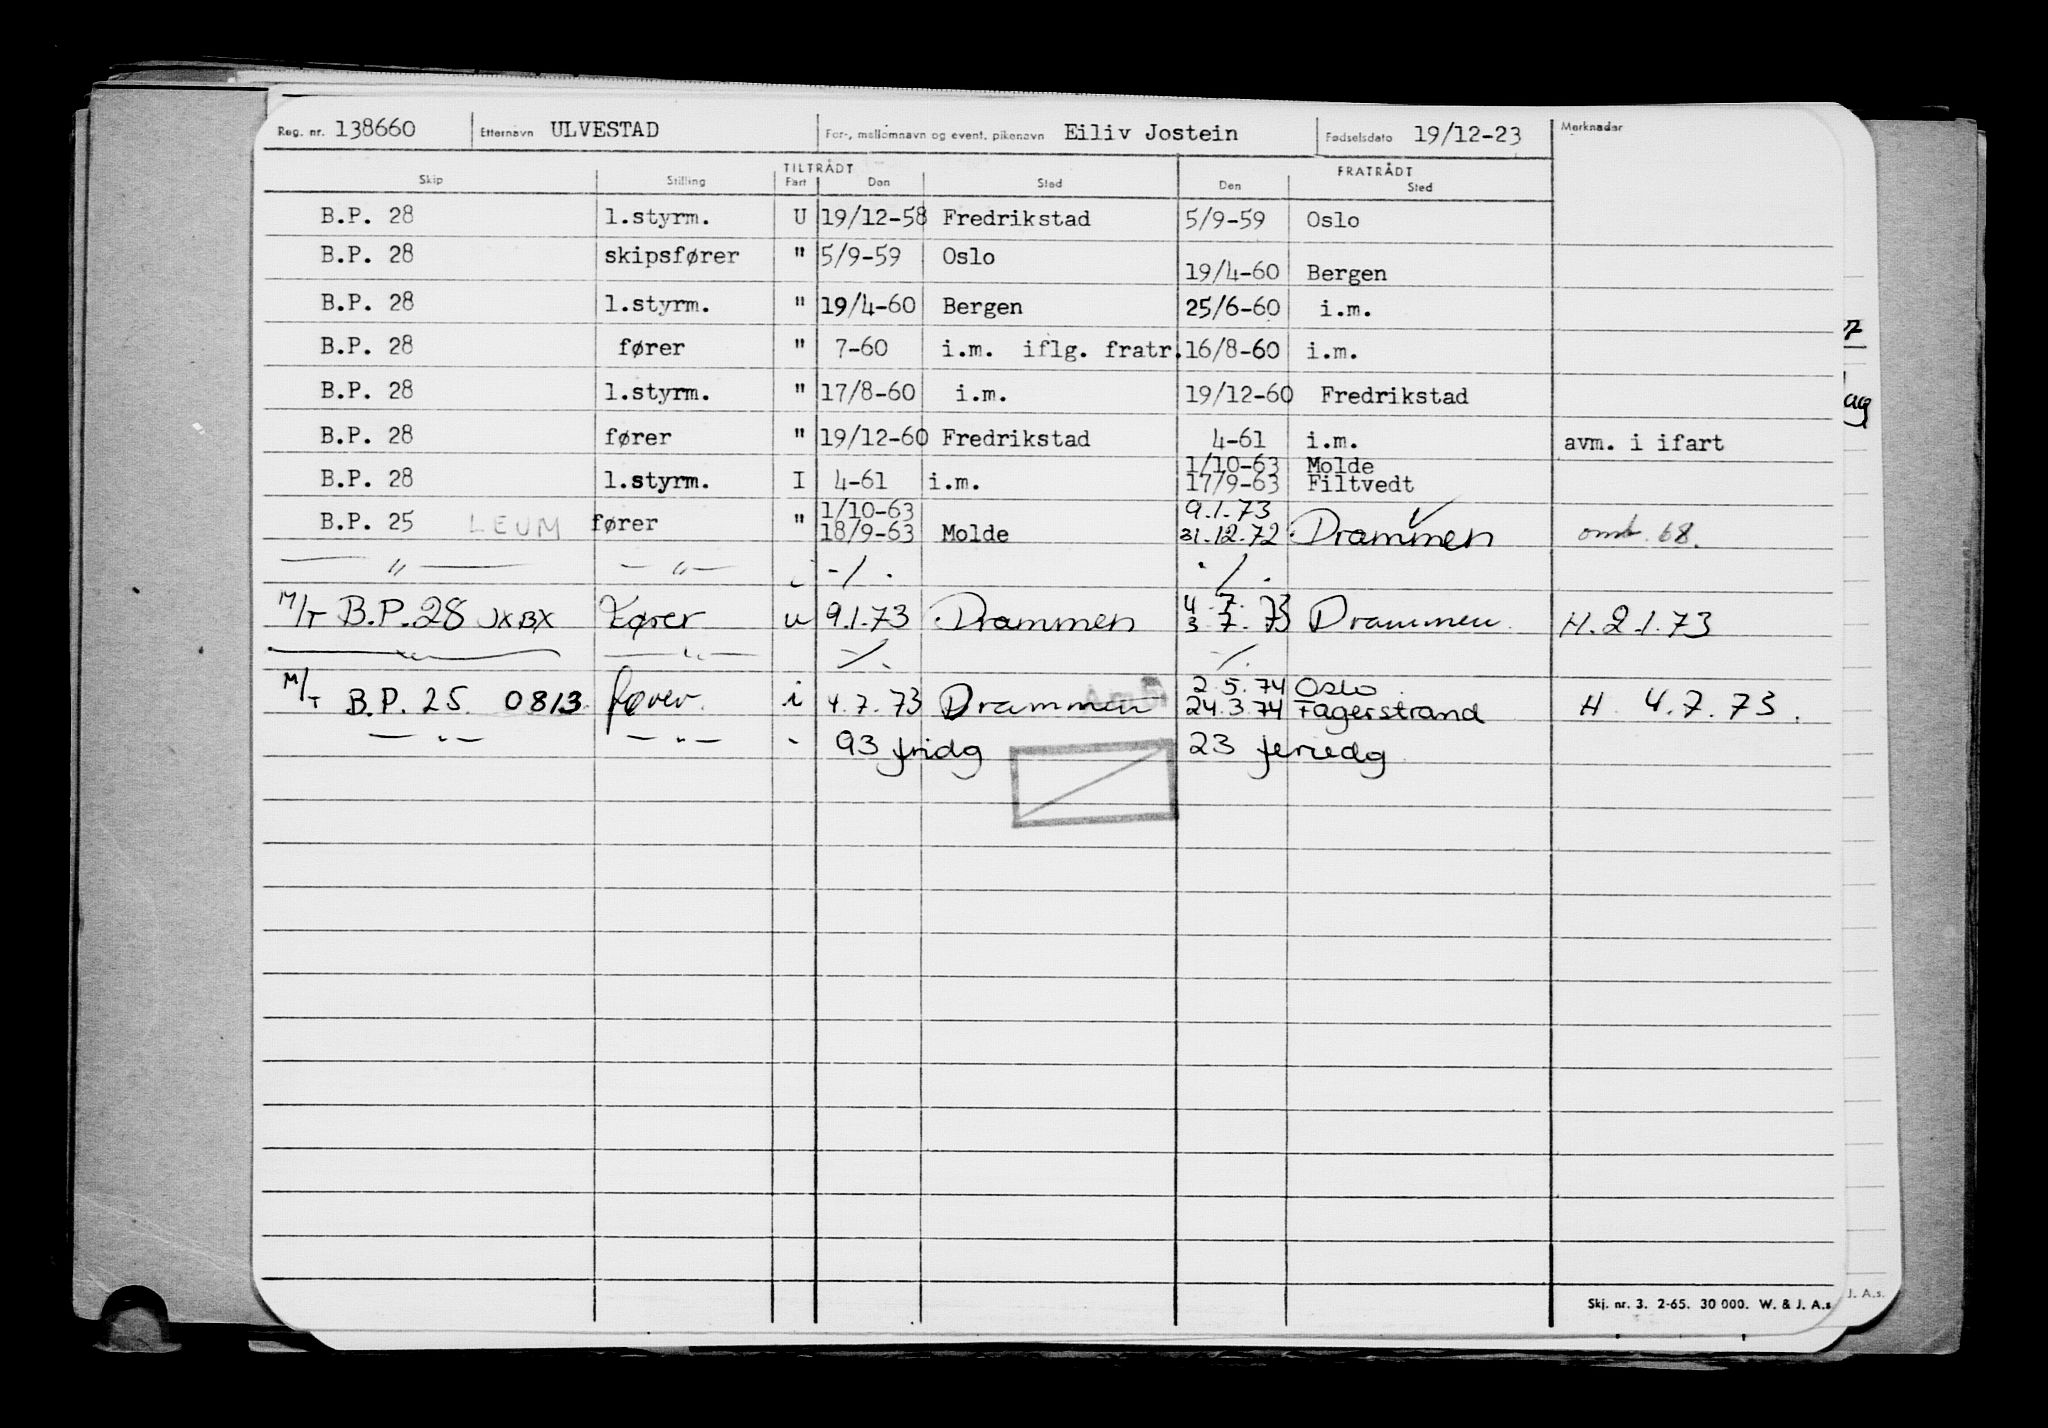 Reg. nr. 138660 Etternavn ULVESTAD For-, mellomnavn og event. pikenavn Eiliv Jostein Fødselsdato 19/12-23 Merknader
TILTRÅDT FRATRÅDT
Skip Stilling Fart Den Sted Den Sted
B.P. 28 1.styrm. U 19/12-58 Fredrikstad 5/9-59 Oslo
B.P. 28 skipsfører " 5/9-59 Oslo 19/4-60 Bergen
B.P. 28 1.styrm. " 19/4-60 Bergen 25/6-60 i.m.
B.P. 28 fører " 7-60 i.m. iflg. fratr. 16/8-60 i.m.
B.P. 28 1.styrm. " 17/8-60 i.m. 19/12-60 Fredrikstad
B.P. 28 fører " 19/12-60 Fredrikstad 4-61 i.m. avm. i ifart
1/10-63 Molde
B.P. 28 1.styrm. I 4-61 i.m. 17/9-63 Filtvedt
1/10-63 9.1.73
B.P. 25 LEUM fører " 18/9-63 Molde 31.12.72 Drammen omb. 68.
— " — — " — -/. ./.
4.7.73
M/T B.P. 28 JXBX Fører u 9.1.73 Drammen 3.7.73 Drammen H. 2.1.73
— " — — " — -/. -/.
2.5.74 Oslo
M/T B.P. 25 0813 fører i 4.7.73 Drammen 24.3.74 Fagerstrand H 4.7.73.
— " — — " — - 93 fridg 23 feriedg
Skj. nr. 3. 2-65. 30 000. W. & J. A.s
J. A.s.